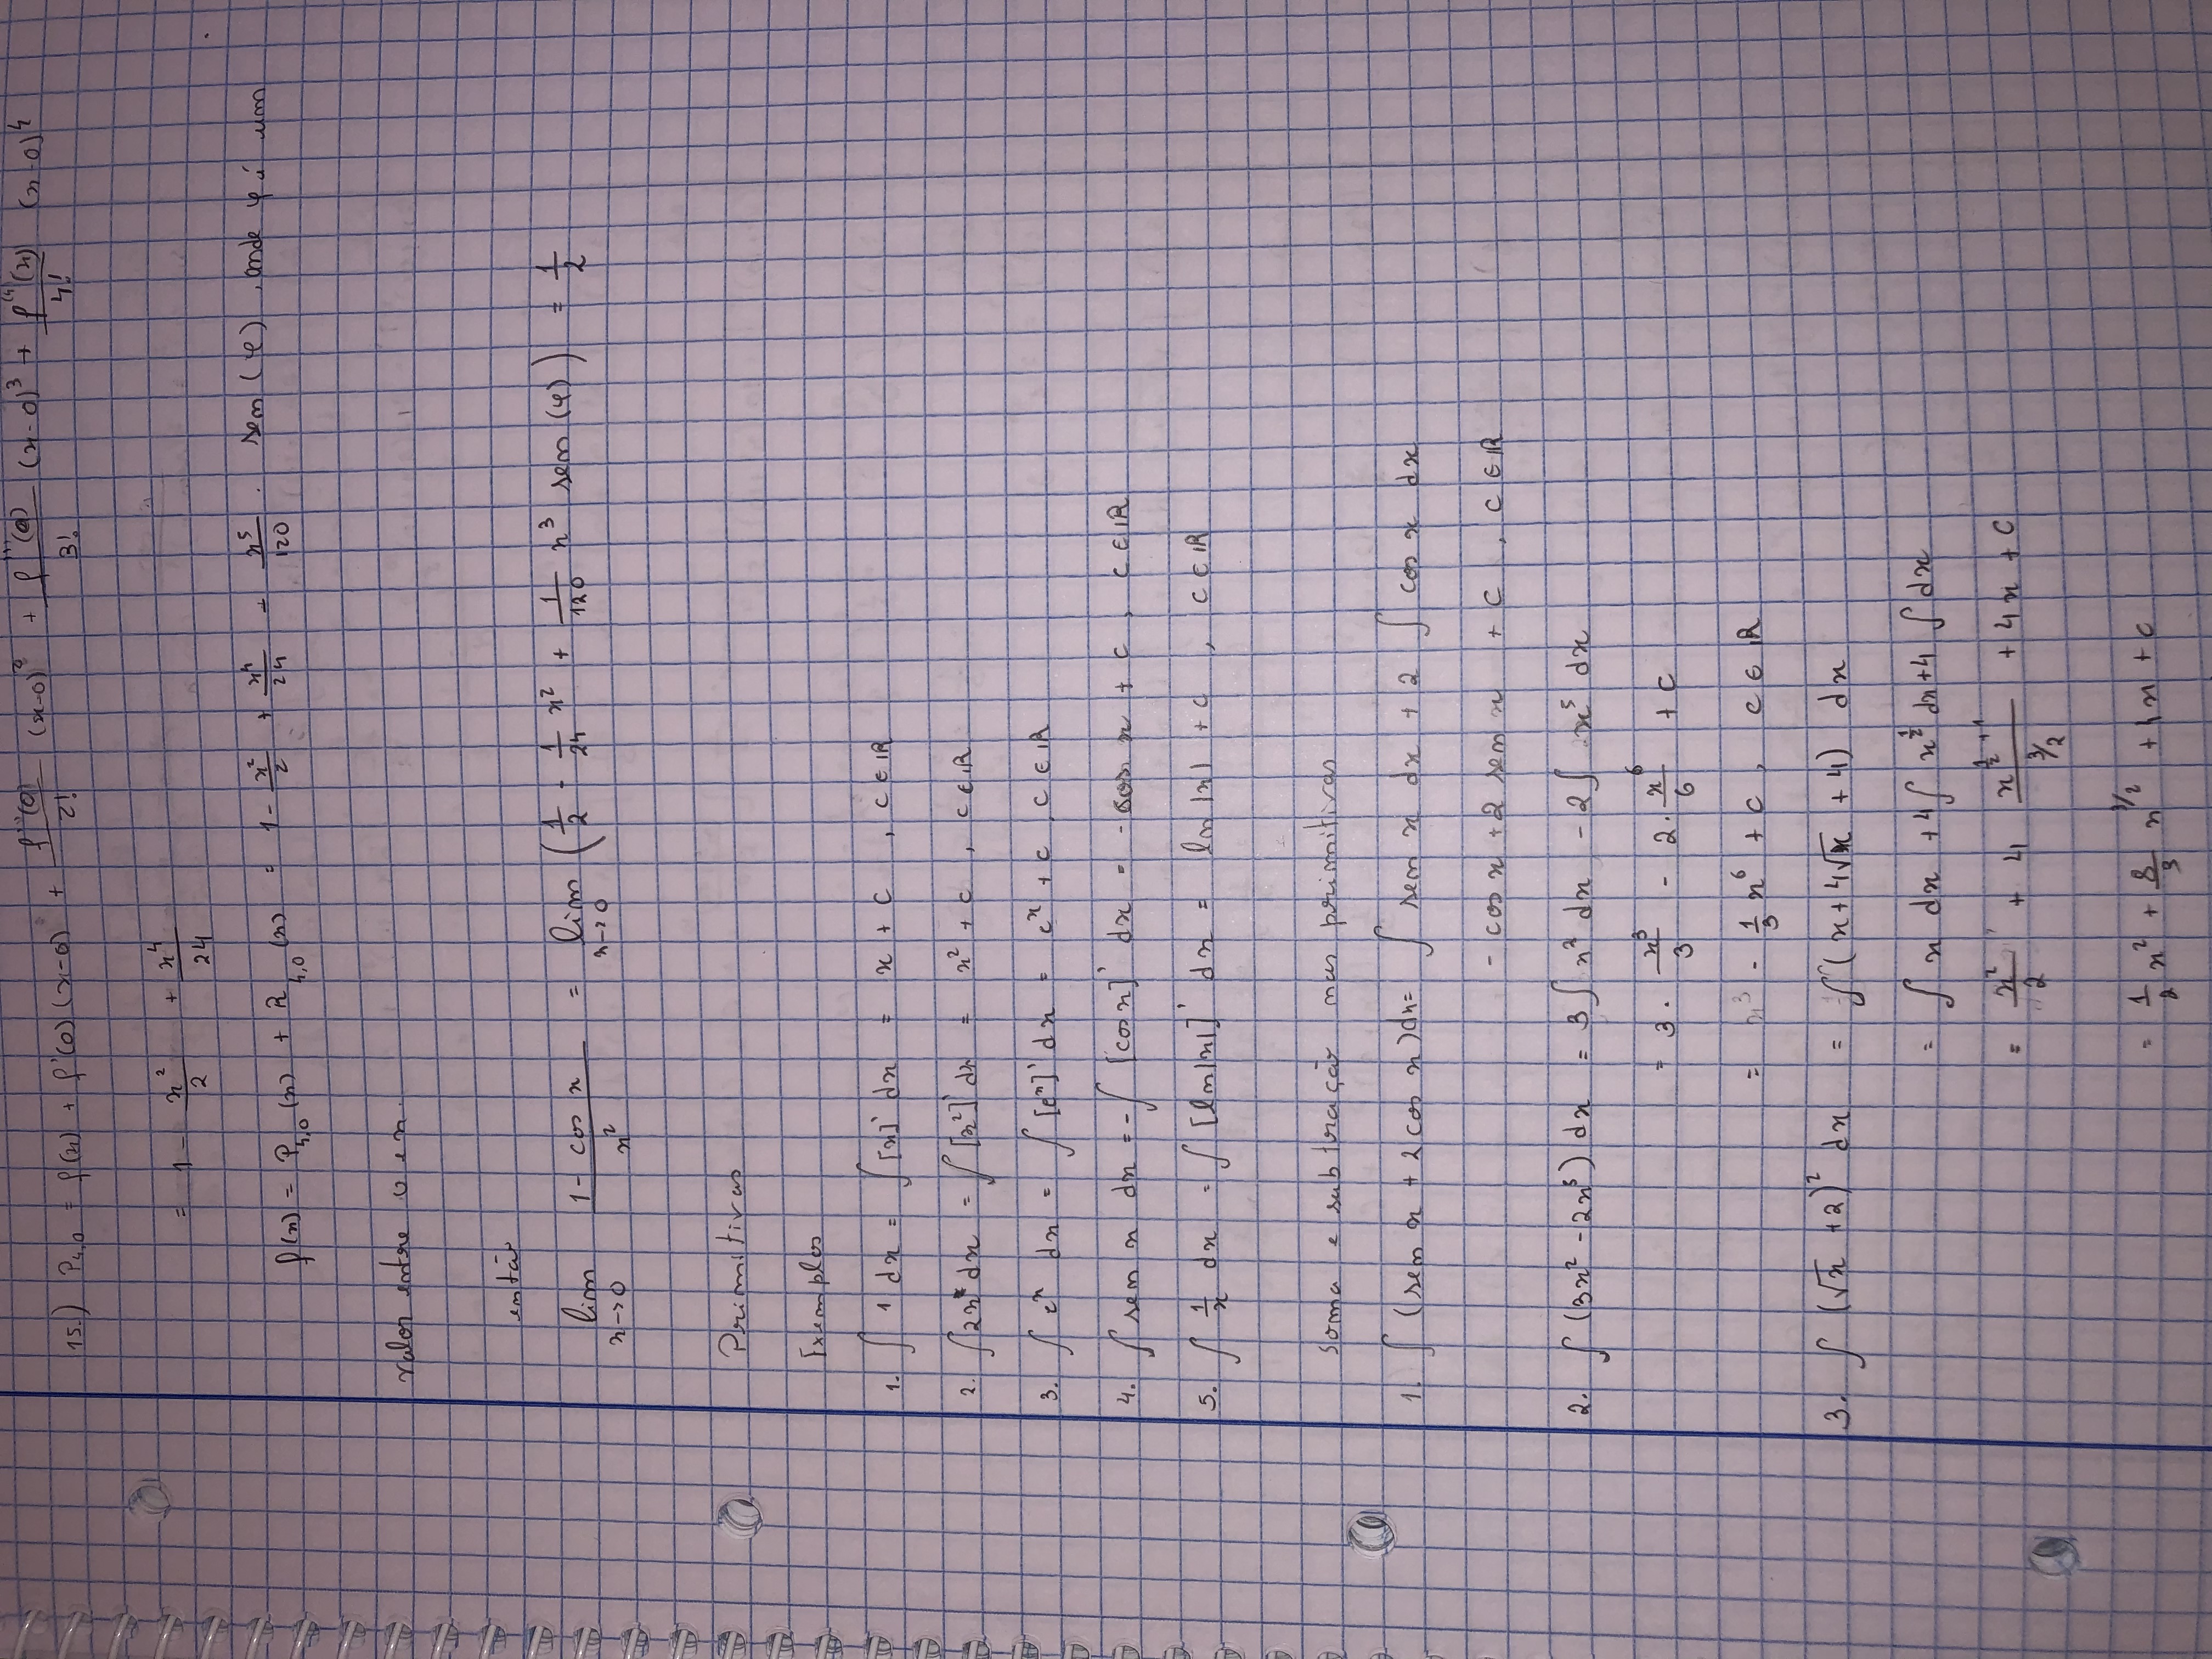 15.) P₄,₀ = f(x) + f'(0) (x-0) + f''(0)/2! (x-0)² + f'''(0)/3! (x-0)³ + f⁽⁴⁾(x)/4! (x-0)⁴
= 1 - x²/2 + x⁴/24
f(x) = P₄,₀(x) + R₄,₀(x) = 1 - x²/2 + x⁴/24 - x⁵/120 . sen(φ), onde φ é um
valor entre 0 e x.
então
lim x→0 (1 - cos x)/x² = lim x→0 (1/2 - 1/24 x² + 1/120 x³ sen(φ)) = 1/2
Primitivas
Exemplos
1. ∫ 1 dx = ∫ [x]' dx = x + c , c ∈ ℝ
2. ∫ 2x dx = ∫ [x²]' dx = x² + c , c ∈ ℝ
3. ∫ eˣ dx = ∫ [eˣ]' dx = eˣ + c , c ∈ ℝ
4. ∫ sen x dx = - ∫ [cos x]' dx = - cos x + c , c ∈ ℝ
5. ∫ 1/x dx = ∫ [ln|x|]' dx = ln |x| + c , c ∈ ℝ
Soma e subtração nas primitivas
1. ∫ (sen x + 2 cos x) dx = ∫ sen x dx + 2 ∫ cos x dx
- cos x + 2 sen x + c , c ∈ ℝ
2. ∫ (3x² - 2x⁵) dx = 3 ∫ x² dx - 2 ∫ x⁵ dx
= 3 . x³/3 - 2 . x⁶/6 + c
= x³ - 1/3 x⁶ + c , c ∈ ℝ
3. ∫ (√x + 2)² dx = ∫ (x + 4√x + 4) dx
= ∫ x dx + 4 ∫ x^(1/2) dx + 4 ∫ dx
= x²/2 + 4 x^(1/2 + 1)/(3/2) + 4x + c
= 1/2 x² + 8/3 x^(3/2) + 4x + c